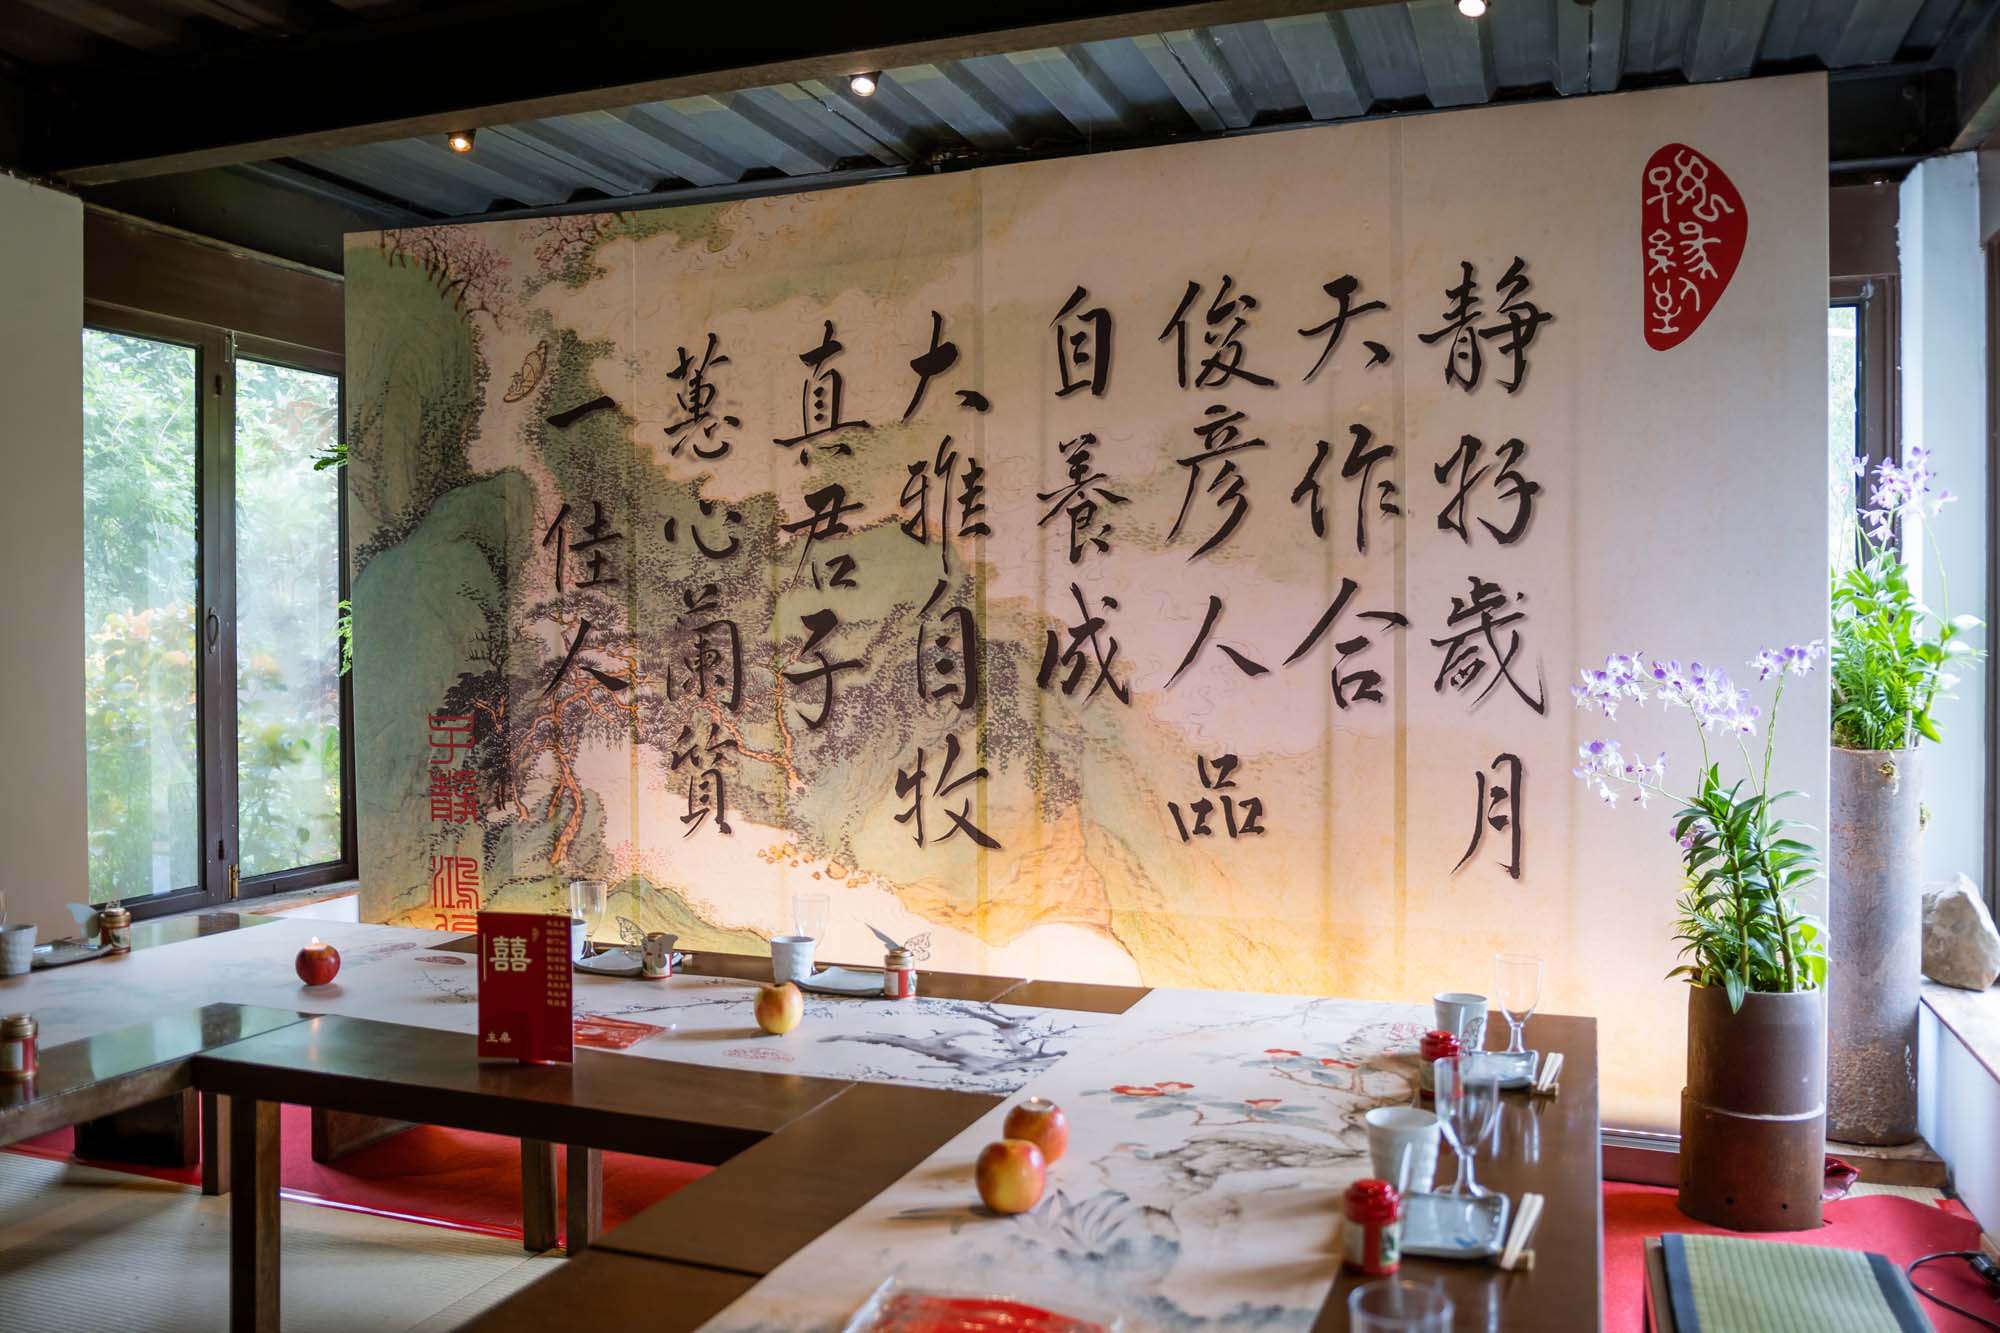 靜好歲月
天作合
俊彥人品
自養成
大雅自牧
真君子
蕙心蘭質
一佳人
囍
主桌